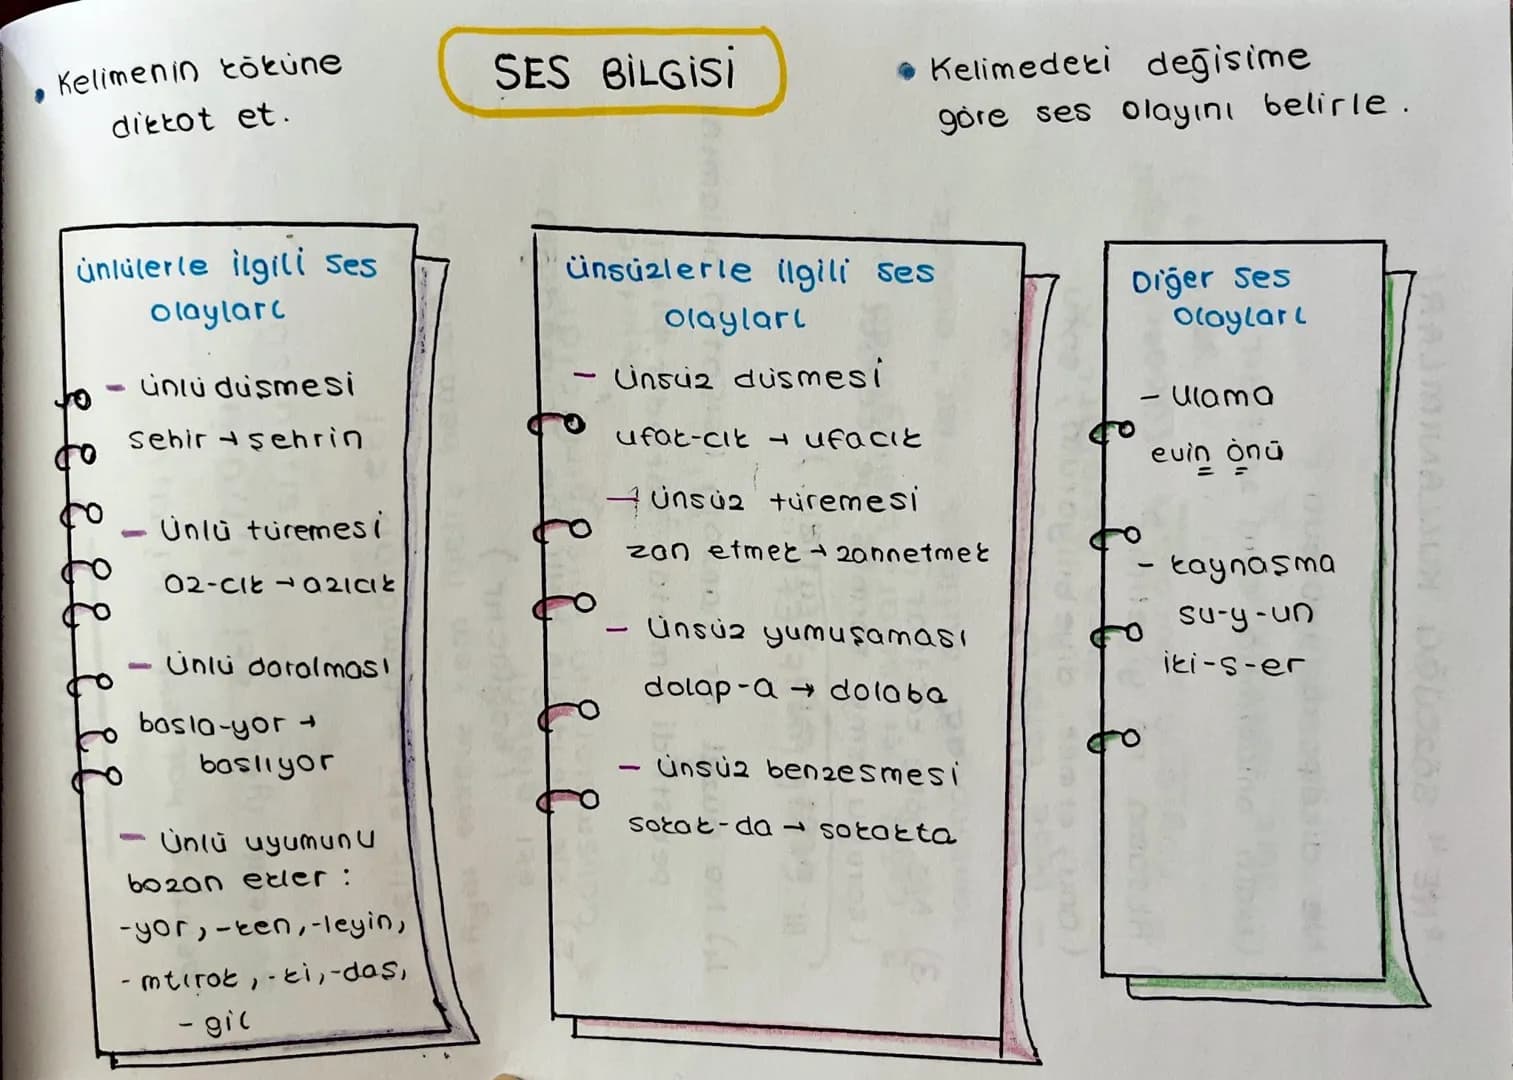 SES BİLGİSİ
• Kelimenin köküne
dikkat et.
• Kelimedeki değişime
göre ses olayını belirle.
ünlülerle ilgili ses
olayları
- ünlü düşmesi
şehir → şehrin
- Ünlü türemesi
az-cık → azıcık
- Ünlü daralması
başla-yor →
başlıyor
- Ünlü uyumunu
bozan ekler :
-yor, -ken, -leyin,
- mtırak, -ki, -daş,
- gil
ünsüzlerle ilgili ses
olayları
- Ünsüz düşmesi
ufak-cık → ufacık
- Ünsüz türemesi
zan etmek → zannetmek
- Ünsüz yumuşaması
dolap-a → dolaba
- Ünsüz benzeşmesi
sokak-da → sokakta
Diğer ses
olayları
- Ulama
evin önü
- kaynaşma
su-y-un
iki-ş-er